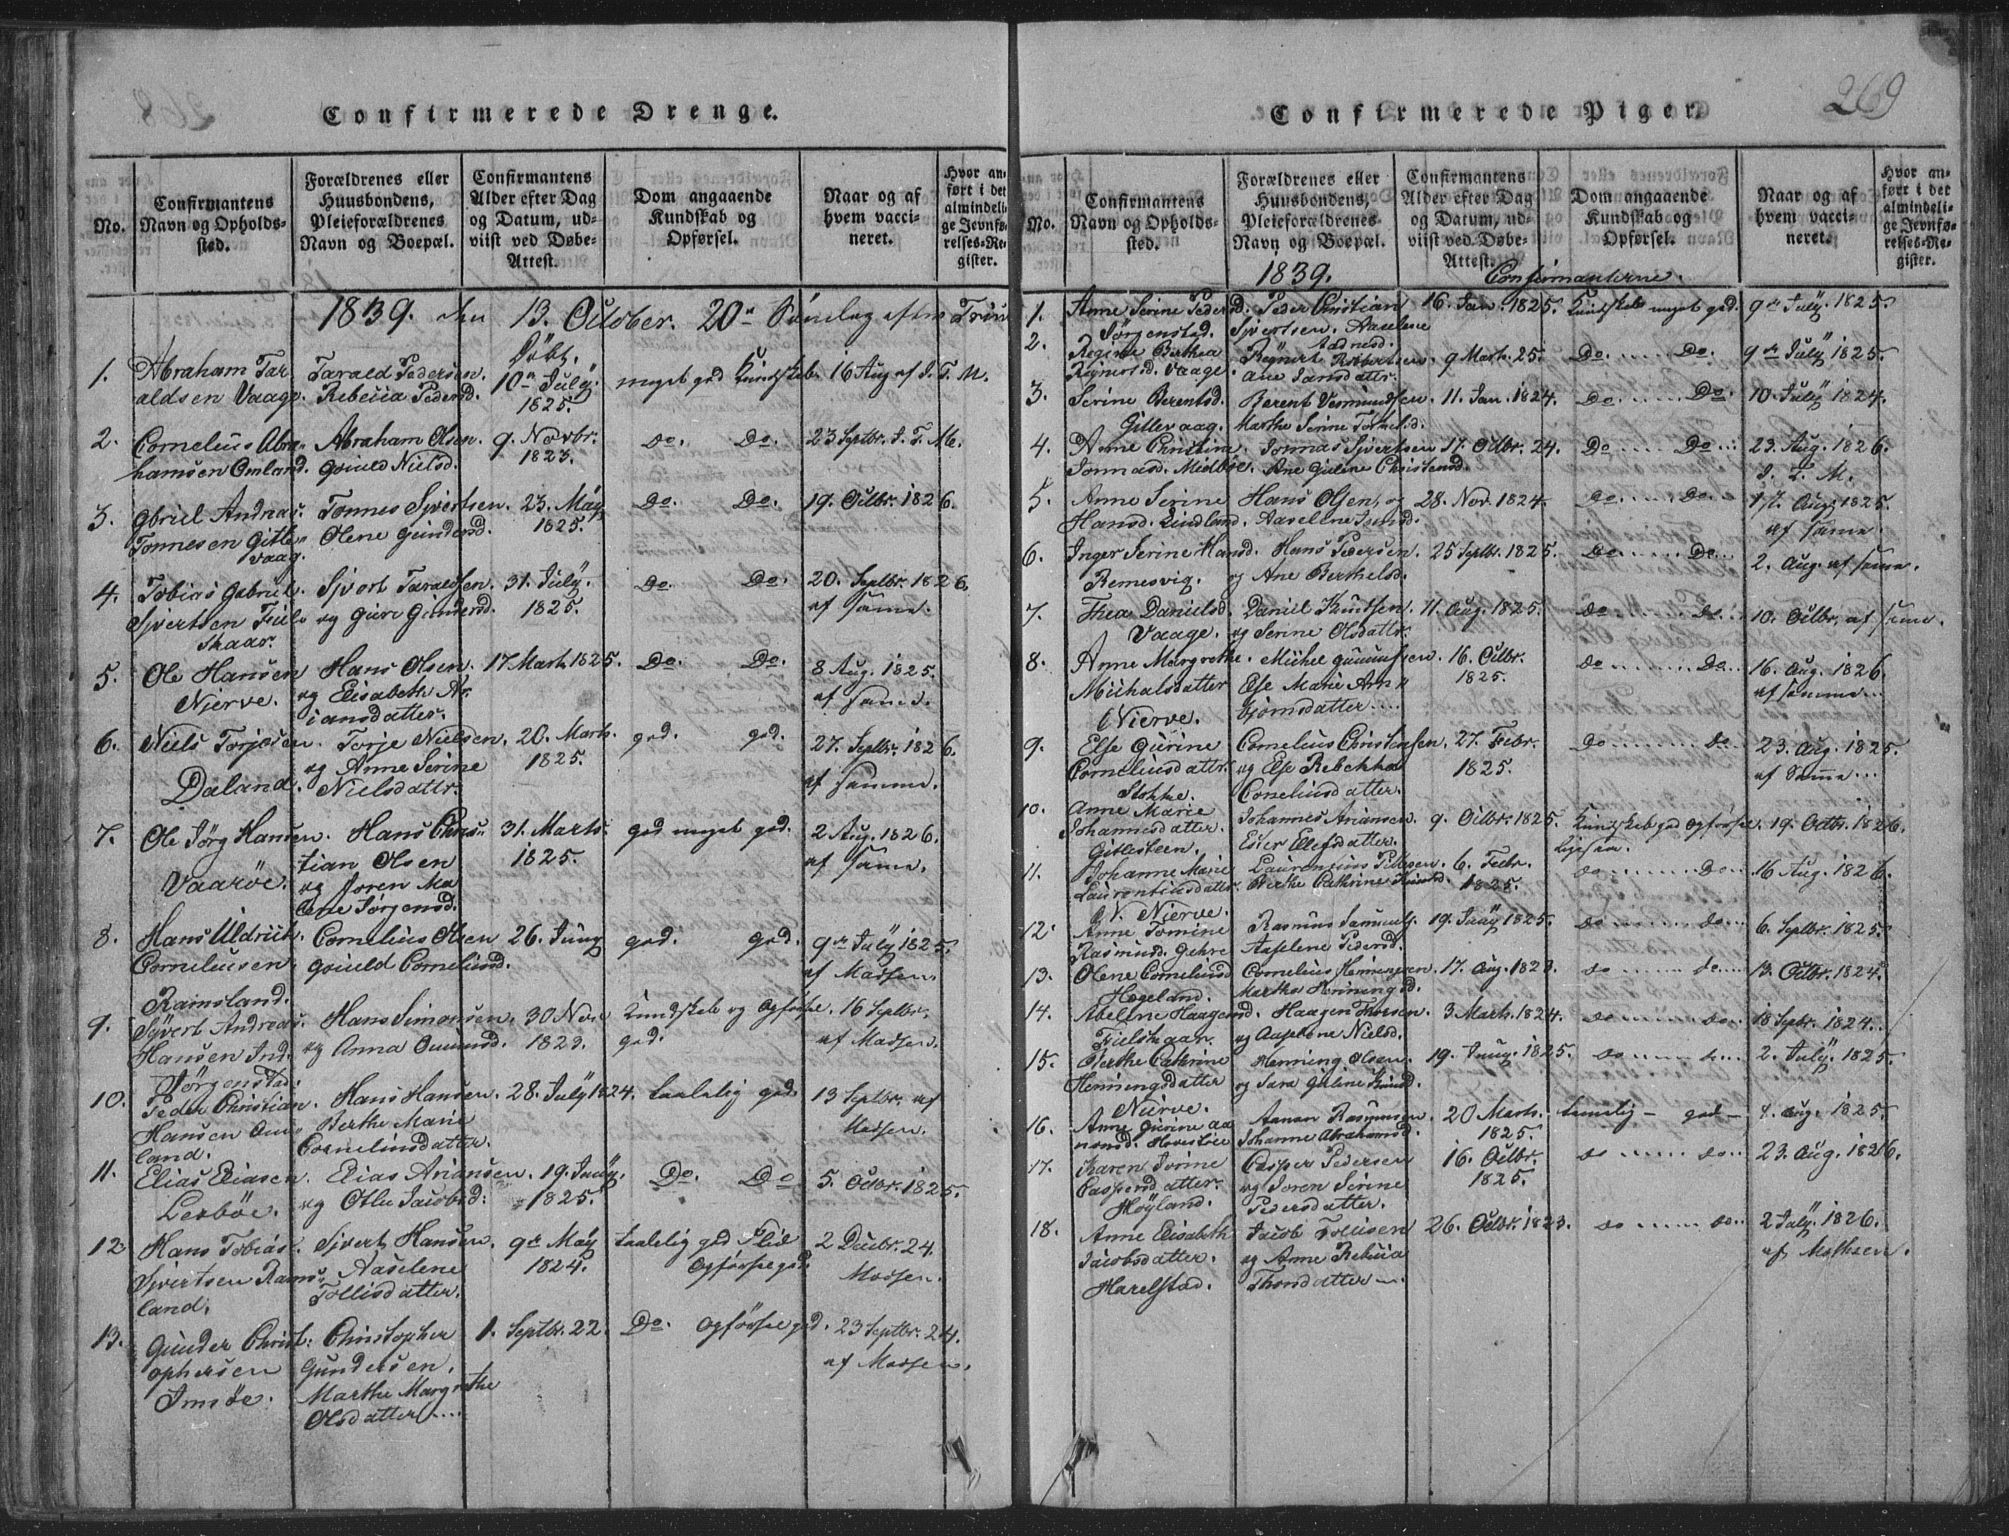 268
Confirmerede Drenge.
No.
Confirmantens
Navn og Opholds-
sted.
Forældrenes eller
Huusbondens,
Pleieforældrenes
Navn og Boepæl.
Confirmantens
Alder efter Dag
og Datum, ud-
viist ved Døbe-
Attest.
Dom angaaende
Kundskab og
Opførsel.
Naar og af
hvem vacci-
neret.
Hvor an-
ført i det
almindeli-
ge Jevnfø-
relses-Re-
gister.
1839. den 13. October. 20de Søndag efter Trin
1. Abraham Tar
aldsen Vaage.
Tarald Pedersen.
Rebecca Pedersd.
Døbt.
10de Julÿ.
1825.
meget god Kundskab.
16 Aug af J. T. M.
2. Cornelius Abra-
hamsen Omland.
Abraham Olsen.
Nielsd.
9. Novbr.
1823.
Do. Do.
23 Septbr. J. T. M.
3. Gbriel Andreas
Tonnesen Gitle-
vaag.
Tonnes Syvertsen.
Olene Gundersd.
23. Maÿ
1825.
Do. Do.
19. Octbr. 1826.
4. Tobias Gabriel
Sjvertsen Fiel-
skaar.
Sjvert Taraldsen.
og Guri Gundersd.
31. Julÿ.
1825.
Do. Do.
20. Septbr. 1826
af samme.
5. Ole Hansen
Nierve.
Hans Olsen.
og Elisabeth Ar.
iansdatter.
17 Mart. 1825.
Do. Do.
8 Aug. 1825.
af samme.
6. Niels Torjesen.
Daland.
Torje Nielsen.
og Anne Serine
Nielsdattr.
20. Marts.
1825.
god. god.
27. Septbr. 1826.
af samme.
7. Ole Jörg Hansen.
Vaaröe.
Hans Chris-
tian Olsen
og Joren Ma
lene Jørgensd.
31. Marts.
1825.
god meget god.
2 Aug. 1826.
af same.
8. Hans Uldrich
Corneliusen
Ramsland.
Cornelius Olsen
Corneliusd.
26. Junÿ
god. god.
9de Julÿ 1825.
af Madsen.
9. Syvert Andreas
Hansen Ind.
Jörgenstad.
Hans Simonsen.
og Anna
30 Nov.
1823.
Kundskab og Opförsel.
god.
16 Septbr.
af Madsen.
10. Peder Christian.
Hansen Om-
land.
Hans Hansen.
Berthe Marie
Corneliusdatter.
28. Julÿ 1824.
taalelig god
13 Septbr. af
Madsen.
11. Elias Eliasen.
Lesböe.
Elias Ariansen.
og Otlu Jacobsd:
19. Junÿ.
1825.
Do. Do
5. Octbr. 1825.
12 Hans Tobias.
Sjvertsen Rams-
land.
Sjvert Hansen.
Aaselene
Tollisdatter.
9de Maÿ
1824.
taalelig god Flid
Opförsel god.
2 Decbr. 24.
Madsen.
13. Gunder Christ-
ophersen
Imsöe.
Christopher
Gundersen.
Marthe Margrethe
Olsdatter....
1. Septbr. 22.
Do. Opförsel god.
23 Septbr. 24.
af Madsen.
269
Confirmerede Piger.
No.
Confirmantens
Navn og Opholds-
sted.
Forældrenes eller
Huusbondens,
Pleieforældrenes
Navn og Boepæl.
Confirmantens
Alder efter Dag
og Datum, ud-
viist ved Døbe-
Attest.
Dom angaaende
Kundskab og
Opførsel.
Naar og af
hvem vacci-
neret.
Hvor an-
ført i det
almindeli-
ge Jevnfø-
relses-Re-
gister.
1839. Confirmanterne.
1. Anne Serine Peder
Jørgenstad.
d. Peder Christian
Sjvertsen. Aaselene
Aadnesd.
16. Jan. 1825.
Kundskab meget god.
9de Julÿ. 1825.
2. Regine Berthea
Regnersd. Vaage.
Regnert Robertsen.
Ane Jansdatter.
9 Mart. 25.
Do. ..... Do.
9de Julÿ 1825.
3. Serine Berentsd.
Gitlevaag.
Berent Vermundsen.
Marthe Serine Torkelsd.
11. Jan. 1824.
Do. ..... Do.
10. Julÿ 1824.
4. Anne Christina
Jonnasd. Midböe.
Jonnas Sjvertsen
Ane Guline Christensd.
17. Octbr. 24.
Do ..... Do...
23. Aug. 1826.
J. T. M.
5. Anne Serine
Hansd. Lindland.
Hans Olsen, og
Aaselene
28. Nov. 1824.
Do. ..... Do...
17. Aug. 1825
af samme.
6. Inger Serine Hansd.
Remesvig.
Hans Pedersen.
og Ane Berthelsd.
25 Septbr. 1825.
Do. ..... Do...
2. Aug. af samme.
7. Thea Danielsd.
Vaage.
Daniel Knutsen.
og Serine Olsdattr.
11. Aug. 1825.
do ..... do.
10. Octbr. af samme.
8. Anne Margrethe.
Michalsdatter
Nierve.
Michel
Else Marie Arn-
bjornsdatter....
16. Octbr.
1825.
do ..... do.
16. Aug. 1826
af samme...
9. Else Gurine
Corneliusdatter.
Stokke.
Cornelius Christensen.
og Else Rebekka
Corneliusdatter.
27. Febr.
1825.
do ..... do
23. Aug. 1825.
af Samme...
10. Anne Marie
Johannesdatter.
Gitlesteen.
Johannes Ariansen.
Ester Elefsdatter.
9. Octbr. 1825.
Kundskab god Opförsel
ligesaa.
19. Octbr. 1826.
11. Johanne Marie
Laurentiusdatter
N. Nierve.
Laurentius Pedersen.
Berthe Cathrine
6. Febr.
1825.
do ..... do...
16 Aug. 1826.
12. Anne Tomine
Rasmusd. Gehre
Rasmus Samuels.
Aaselene Pedersd.
19. Junÿ 1825.
do ..... do...
6. Septbr. 1825.
13. Olene Corneliusd
Hogeland.
Cornelius Henningsen.
Martha Henningsd.
17. Aug. 1823.
do ..... do...
13. Octbr. 1824.
14. Abelene Haagensd.
Fielskaar.
Haagen Thorsen.
og Aaselene Nielsd.
3 Marts. 1824.
do ..... do...
18 Septbr. 1824.
15. Berthe Cathrine
Henningsdatter
Nierve.
Henning Olsen.
og Sara Guline
19. Junÿ. 1825.
do ..... do...
2. Julÿ. 1825.
16. Anne Gurine Aa
nensd.
Aanen Rasmusen.
Johanne Abrahamsd.
20 Marts.
1825.
temelig – god –
4. Aug. 1825.
17. Karen Torine
Caspersdatter.
Höyland.
Casper Pedersen
og Joren Serine
Pedersdatter.
16. Octbr.
1825.
do ..... do...
23. Aug. 1826.
18. Anne Elisabeth
Jacobsdatter.
Harelstad.
Jacob Tollisen
og Anne Rebecca
Thorsdatter...
26. Octbr. 1823.
do ..... do...
2 Julÿ. 1826.
af Mathsen.